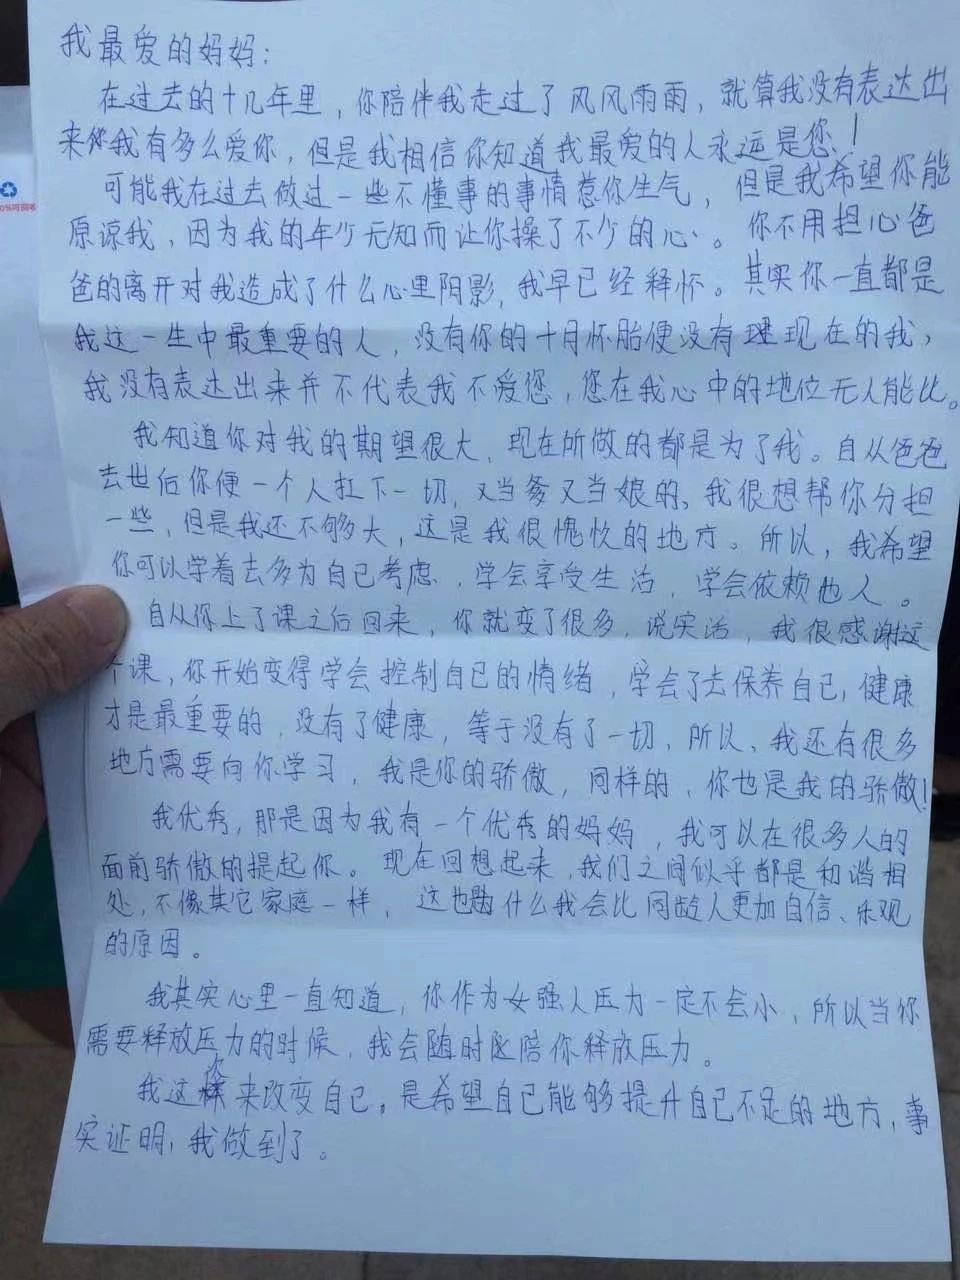 我最爱的妈妈：
在过去的十几年里，你陪伴我走过了风风雨雨，就算我没有表达出
来你我有多么爱你，但是我相信你知道我最爱的人永远是您！
可能我在过去做过一些不懂事的事情惹你生气，但是我希望你能
原谅我，因为我的年少无知而让你操了不少的心。你不用担心爸
爸的离开对我造成了什么心里阴影，我早已经释怀。其实你一直都是
我这一生中最重要的人，没有你的十月怀胎便没有现在的我，
我没有表达出来并不代表我不爱您，您在我心中的地位无人能比。
我知道你对我的期望很大，现在所做的都是为了我。自从爸爸
去世后你便一个人扛下一切，又当爹又当娘的，我很想帮你分担
一些，但是我还不够大，这是我很愧疚的地方。所以，我希望
你可以学着去多为自己考虑，学会享受生活，学会依赖他人。
自从你上了课之后回来，你就变了很多，说实话，我很感谢这
个课，你开始变得学会控制自己的情绪，学会了去保养自己，健康
才是最重要的，没有了健康，等于没有了一切，所以，我还有很多
地方需要向你学习，我是你的骄傲，同样的，你也是我的骄傲！
我优秀，那是因为我有一个优秀的妈妈，我可以在很多人的
面前骄傲的提起你。现在回想起来，我们之间似乎都是和谐相
处，不像其它家庭一样，这也是为什么我会比同龄人更加自信、乐观
的原因。
我其实心里一直知道，你作为女强人压力一定不会小，所以当你
需要释放压力的时候，我会随时陪你释放压力。
我这次来改变自己，是希望自己能够提升自己不足的地方，事
实证明，我做到了。